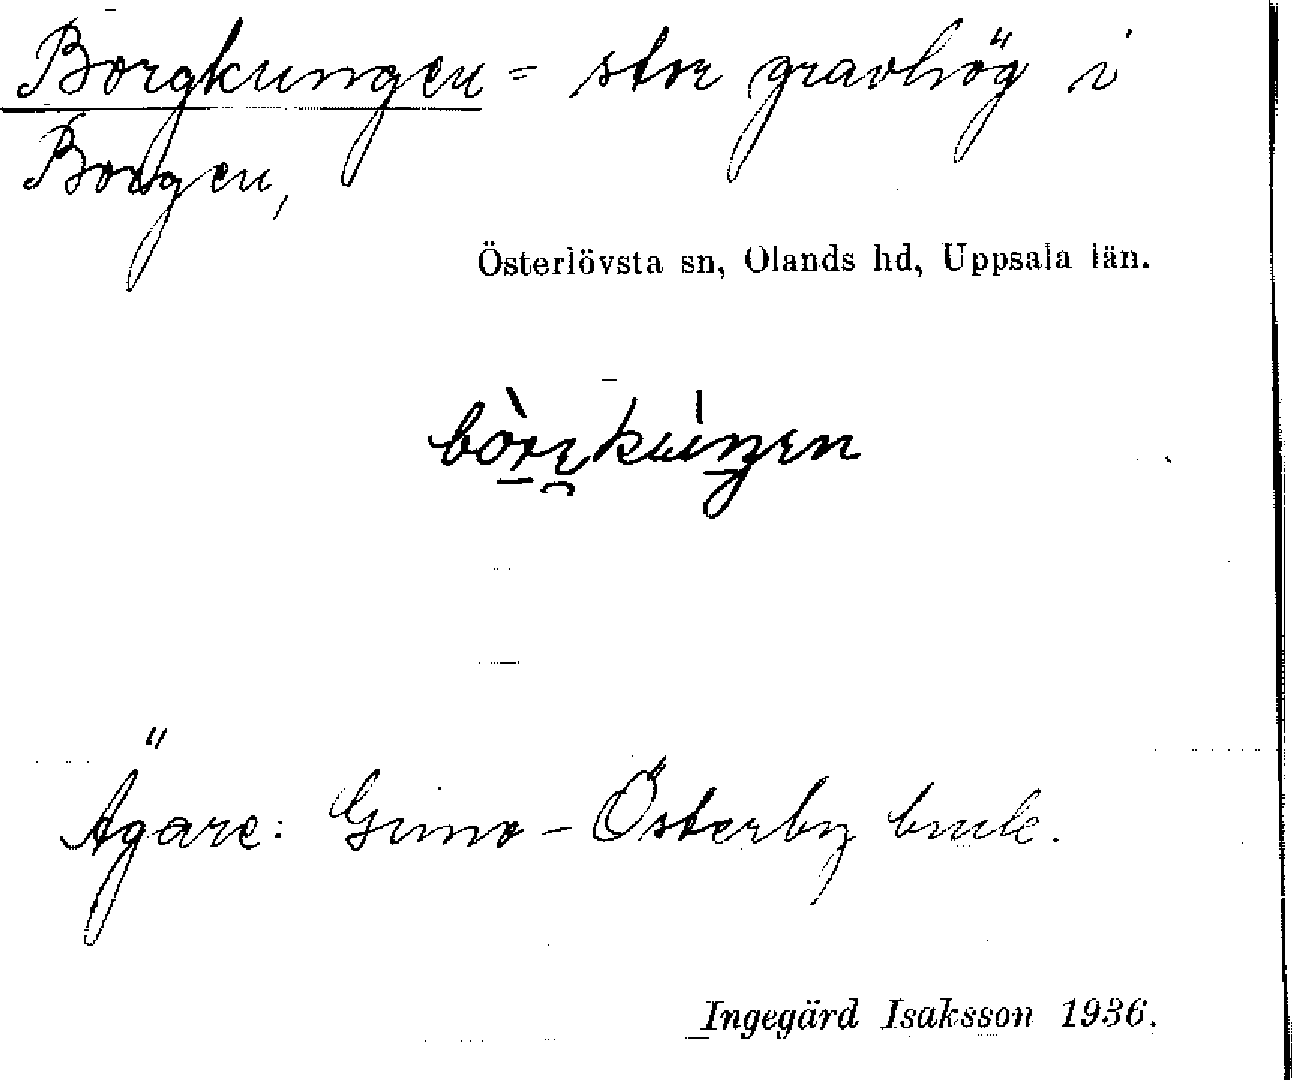 Borgkungen = stor gravhög i
Borgen,
Österlövsta sn, Olands hd, Uppsala län.
Ägare: Gimo-Österby bruk.
Ingegärd Isaksson 1936.